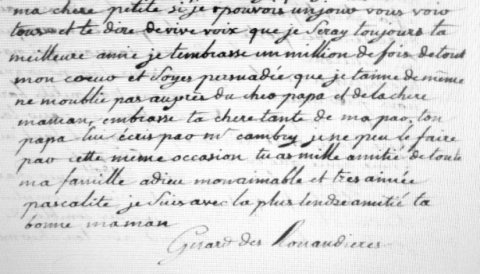 ma chere petite si je pouvois un jour vous voir
tous et te dire de vive voix que je seray toujours ta
meilleure amie je t'embrasse un million de fois de tout
mon coeur et soyes persuadée que je t'aime de meme
ne m'oublie pas aupres du cher papa et de la chere
maman, embrasse ta chere tante de ma par. ton
papa lui ecris par mr cambry je ne peu le faire
par cette meme occasion tu as mille amitié de toute
ma famille adieu mon aimable et tres aimée
pascalite je suis avec la plus tendre amitié ta
bonne maman
Girard des Rouaudieres